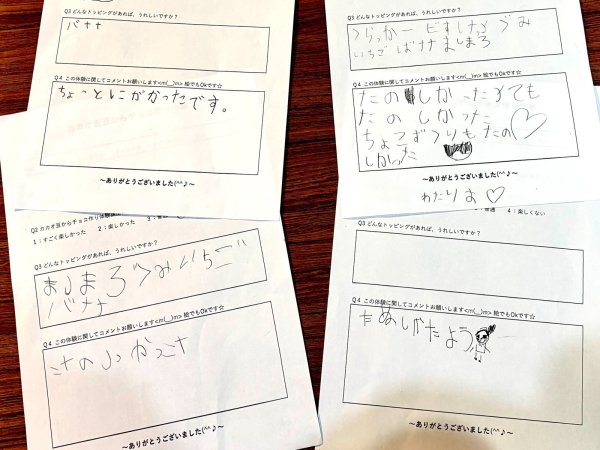 Q3 どんなトッピングがあれば、うれしいですか？
バナナ
Q４ この体験に関してコメントお願いします<m(__)m> 絵でもOkです☆
ちょっとにがかったです。
～ありがとうございました(^^♪～
Q3 どんなトッピングがあれば、うれしいですか？
いちご ばなな ましまろ
Q４ この体験に関してコメントお願いします<m(__)m> 絵でもOkです☆
たのしかったよとても
たのしかった
ちょこずくりもたの♡
しかった
～ありがとうございました(^^♪～
Q2 カカオ豆からチョコ作り体験
1：すごく楽しかった 2：楽しかった
Q3 どんなトッピングがあれば、うれしいですか？
ましまろ ぐみ いちご
バナナ
Q４ この体験に関してコメントお願いします<m(__)m> 絵でもOkです☆
～ありがとうございました(^^♪～
4：楽しくない
Q3 どんなトッピングがあれば、うれしいですか？
Q４ この体験に関してコメントお願いします<m(__)m> 絵でもOkです☆
たぬしかたよう
～ありがとうございました(^^♪～